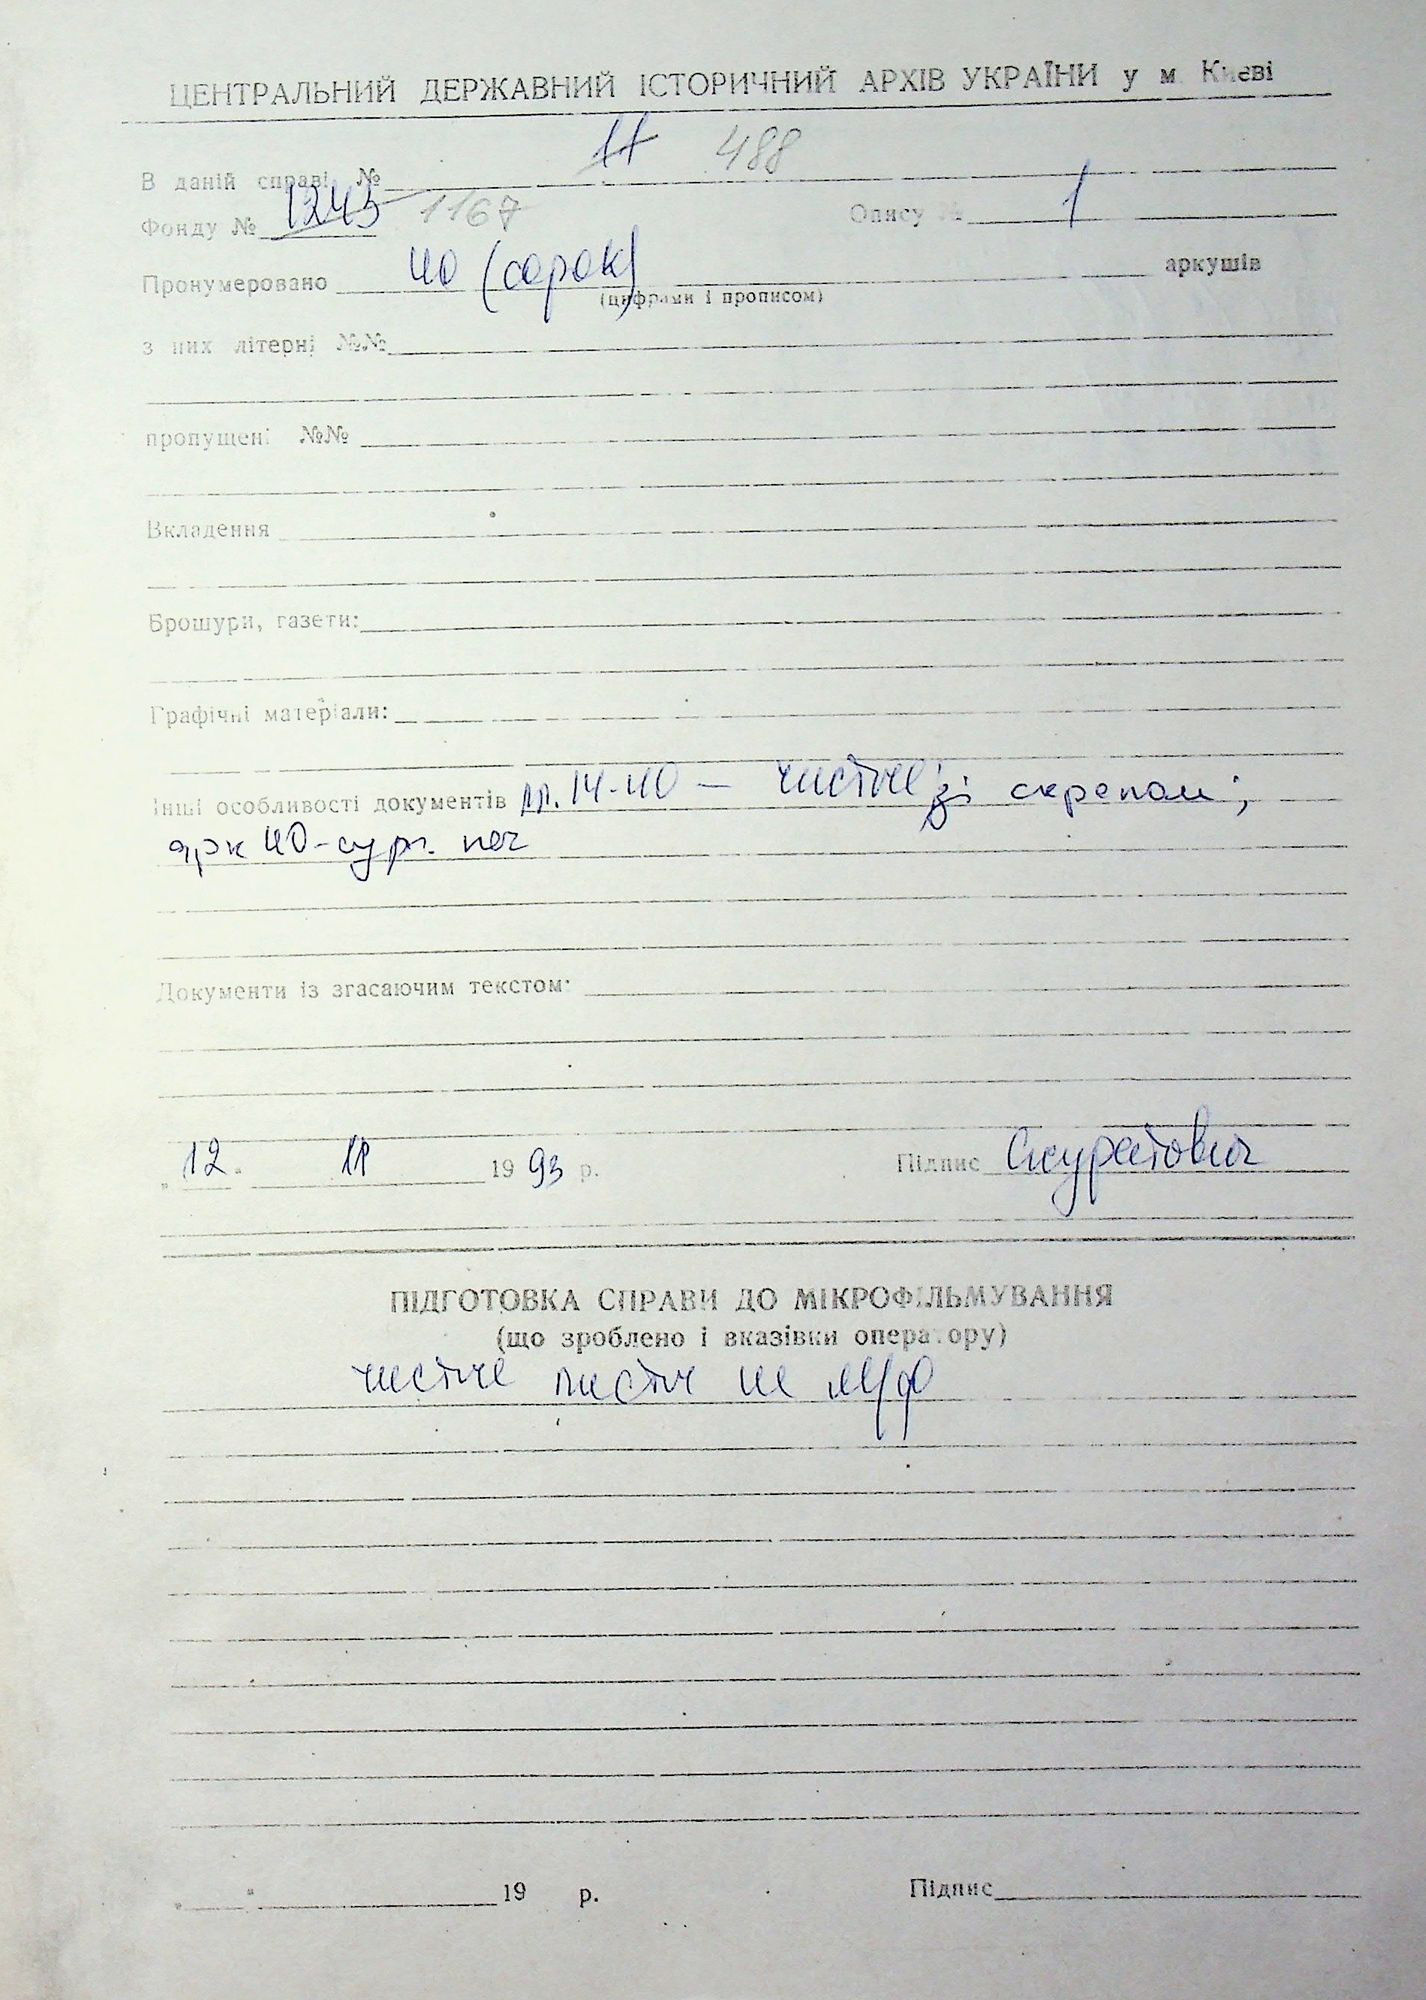 ЦЕНТРАЛЬНИЙ ДЕРЖАВНИЙ ІСТОРИЧНИЙ АРХІВ УКРАЇНИ у м. Києві
В даній справі № 11 488
Фонду № 1243 1167 Опису № 1
Пронумеровано 40 (сорок) аркушів
(цифрами і прописом)
з них літерні №№
пропущені №№
Вкладення
Брошури, газети:
Графічні матеріали:
Інші особливості документів арк. 14-40 — чисті зі скрепами;
арк 40-сург. печ
Документи із згасаючим текстом:
„12" 11 1993 р. Підпис Скуратович
ПІДГОТОВКА СПРАВИ ДО МІКРОФІЛЬМУВАННЯ
(що зроблено і вказівки оператору)
чисті листи не м/ф
„ " 19 р. Підпис